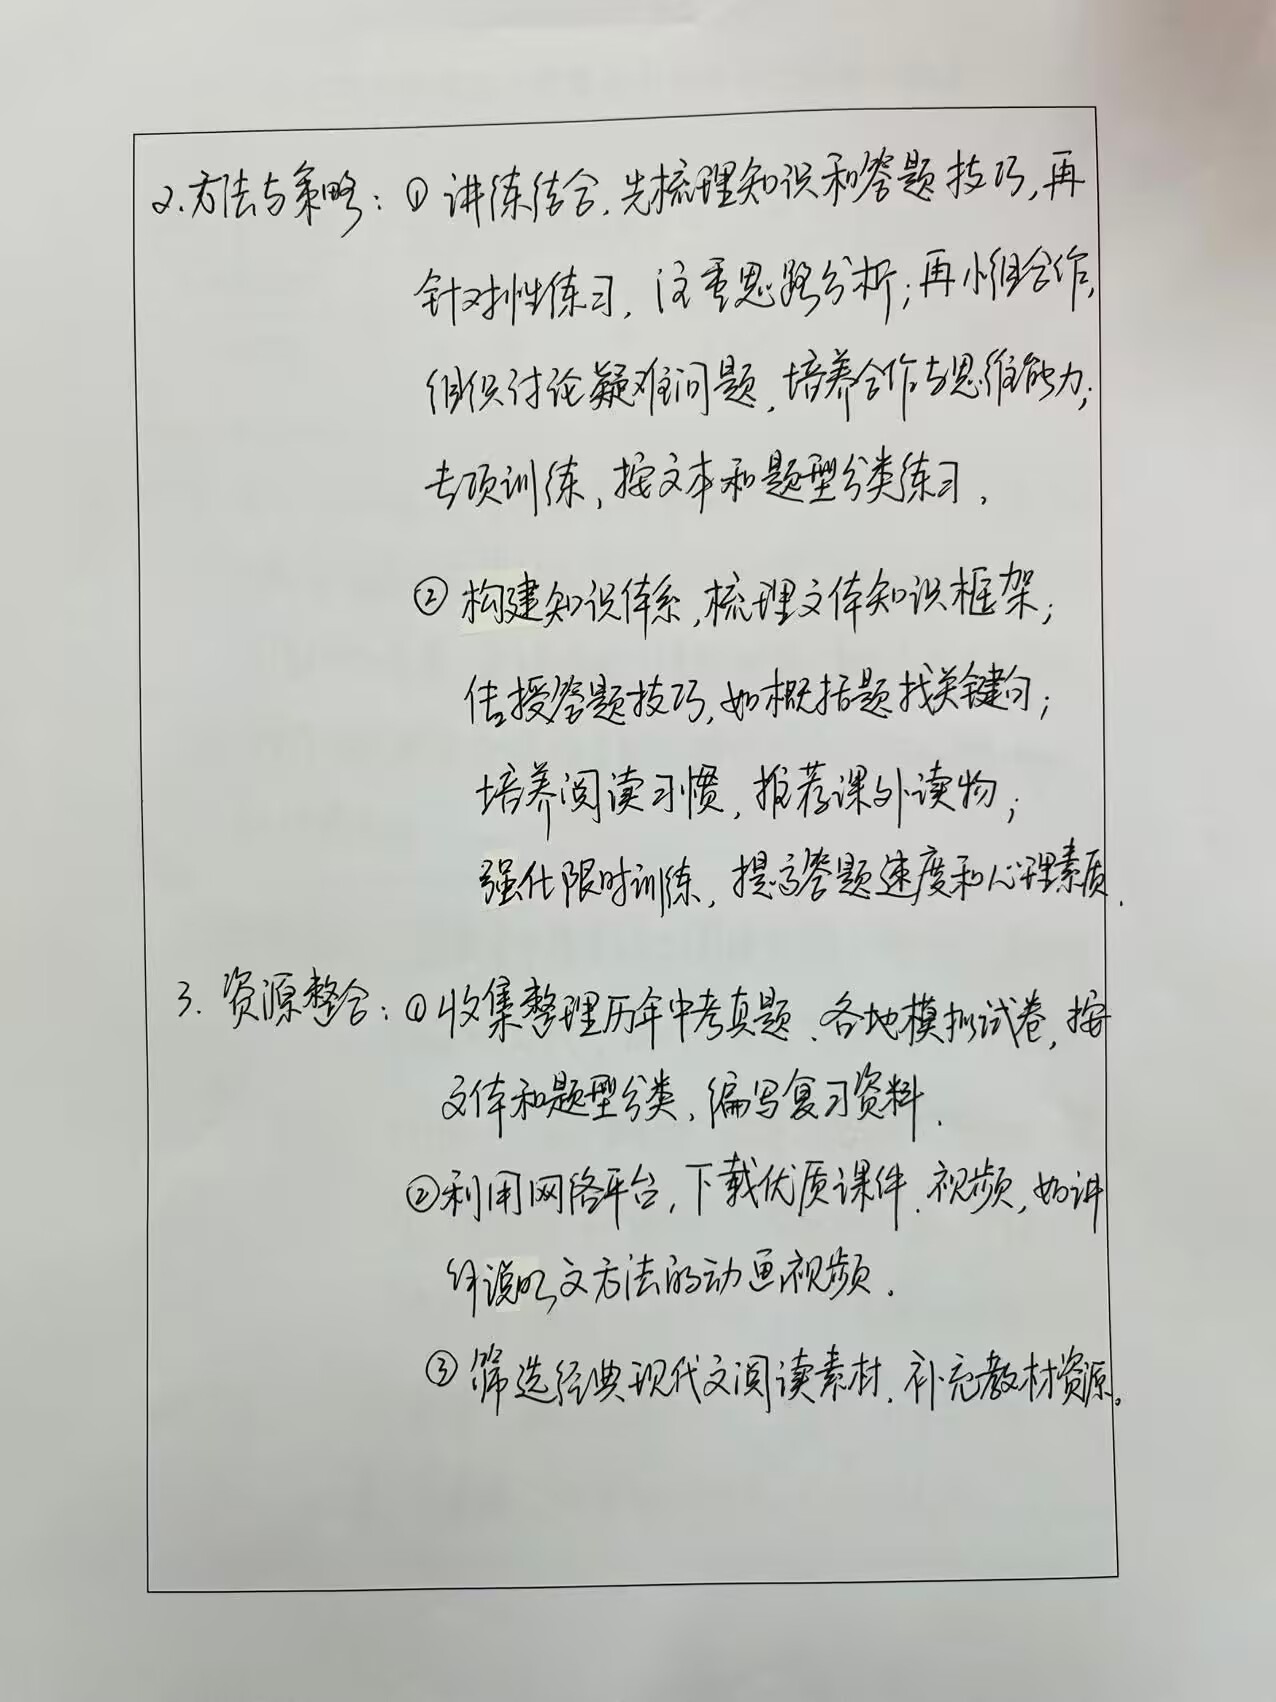 2.方法与策略：① 讲练结合，先梳理知识和答题技巧，再
针对性练习，注重思路分析；再小组合作，
组织讨论疑难问题，培养合作与思维能力；
专项训练，按文本和题型分类练习。
② 构建知识体系，梳理文体知识框架；
传授答题技巧，如概括题找关键句；
培养阅读习惯，推荐课外读物；
强化限时训练，提高答题速度和心理素质。
3. 资源整合：①收集整理历年中考真题、各地模拟试卷，按
文体和题型分类，编写复习资料。
②利用网络平台，下载优质课件、视频，如讲
解说明文方法的动画视频。
③ 筛选经典现代文阅读素材，补充教材资源。